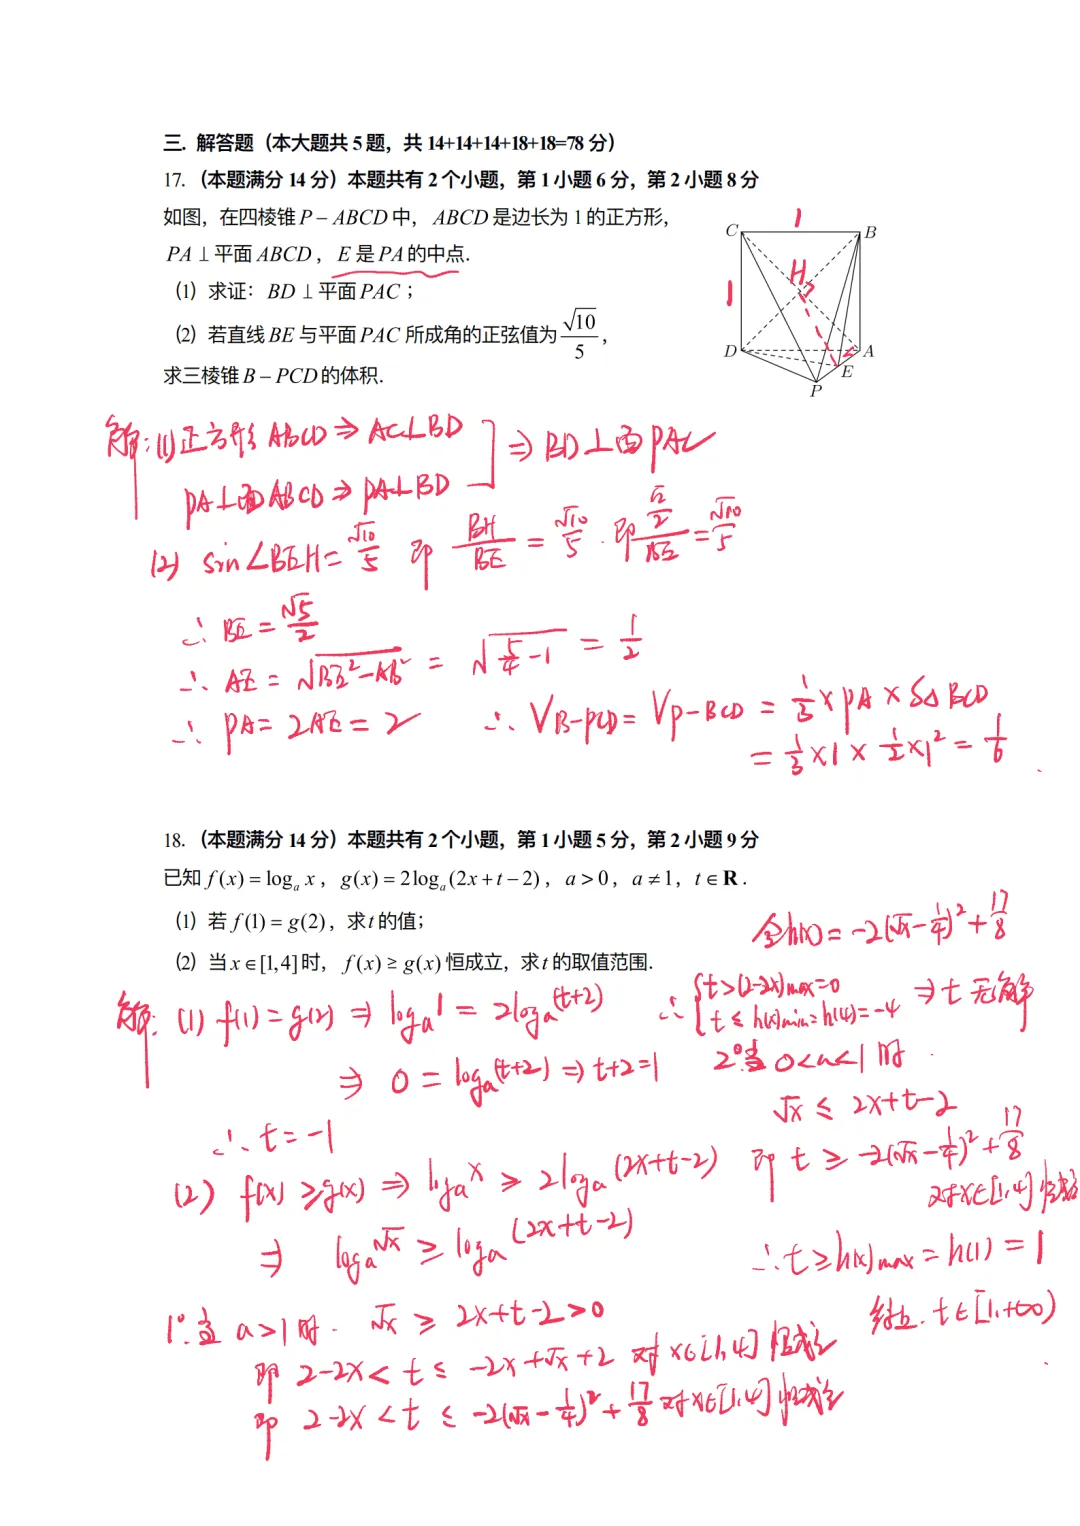 三. 解答题（本大题共 5 题，共 14+14+14+18+18=78 分）
17. （本题满分 14 分）本题共有 2 个小题，第 1 小题 6 分，第 2 小题 8 分
如图，在四棱锥 P − ABCD 中， ABCD 是边长为 1 的正方形，
PA ⊥ 平面 ABCD ， E 是 PA 的中点.
（1）求证： BD ⊥ 平面 PAC ；
（2）若直线 BE 与平面 PAC 所成角的正弦值为 √10/5 ，
求三棱锥 B − PCD 的体积.
C 1 B
1 H
D A
E
P
解：(1) 正方形 ABCD ⇒ AC⊥BD
PA⊥面ABCD ⇒ PA⊥BD ] ⇒ BD⊥面PAC
(2) sin∠BEH = √10/5 即 BH/BE = √10/5 . 即 (√2/2)/BE = √10/5
∴ BE = √5/2
∴ AE = √(BE²−AB²) = √(5/4 −1) = 1/2
∴ PA = 2AE = 2 ∴ V B-PCD = V P-BCD = 1/3 × PA × S△BCD
= 1/3 ×1× 1/2 ×1² = 1/6
18. （本题满分 14 分）本题共有 2 个小题，第 1 小题 5 分，第 2 小题 9 分
已知 f(x) = logₐ x ， g(x) = 2logₐ(2x + t − 2) ， a > 0 ， a ≠ 1 ， t ∈ R .
（1）若 f(1) = g(2) ，求 t 的值；
（2）当 x ∈ [1,4] 时， f(x) ≥ g(x) 恒成立，求 t 的取值范围.
解：(1) f(1) = g(2) ⇒ logₐ1 = 2logₐ(t+2)
⇒ 0 = logₐ(t+2) ⇒ t+2=1
∴ t = −1
(2) f(x) ≥ g(x) ⇒ logₐx ≥ 2logₐ(2x+t−2)
⇒ logₐ√x ≥ logₐ(2x+t−2)
1° 当 a>1 时. √x ≥ 2x+t−2>0
即 2−2x < t ≤ −2x+√x+2 对 x∈[1,4] 恒成立
即 2−2x < t ≤ −2(√x − 1/4)² + 17/8 对x∈[1,4] 恒成立
令h(x) = −2(√x − 1/4)² + 17/8
∴ { t>(2−2x)max=0
t ≤ h(x)min=h(4)=−4 ⇒ t 无解
2° 当 0<a<1 时.
√x ≤ 2x+t−2
即 t ≥ −2(√x − 1/4)² + 17/8
对x∈[1,4] 恒成立
∴ t ≥ h(x)max = h(1) = 1
综上. t∈[1,+∞)